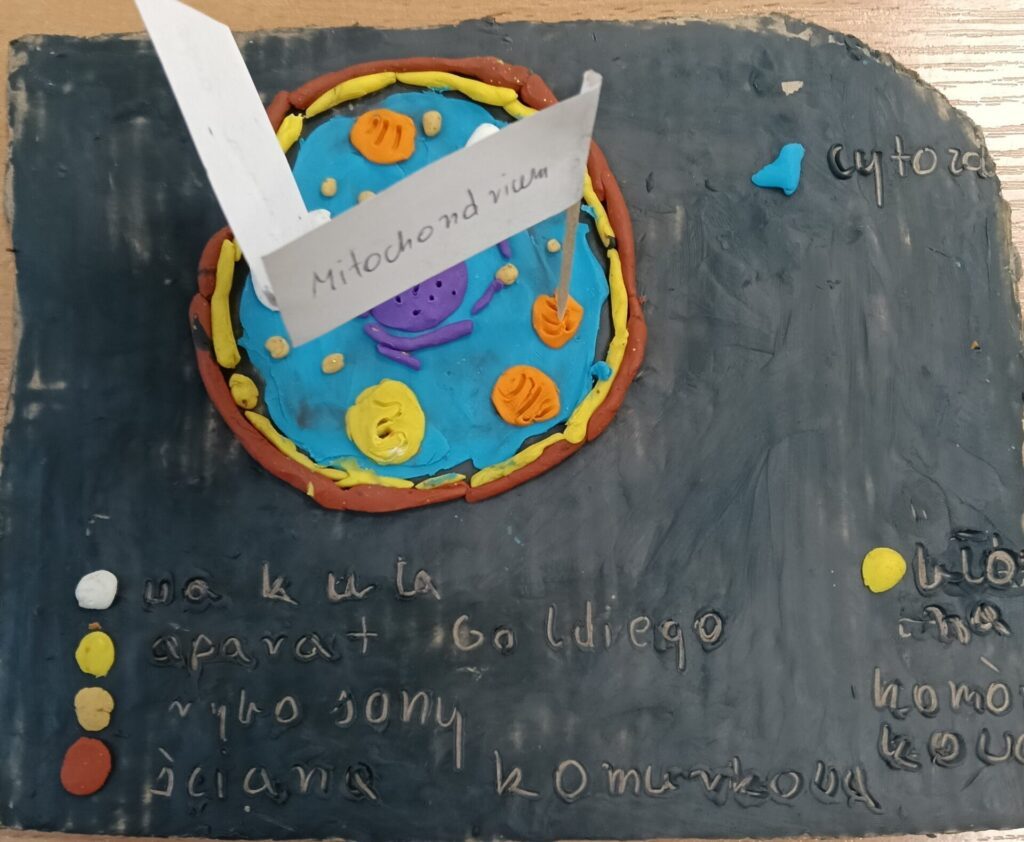 Mitochondrium
cytozo
wakula
aparat Goldiego
rybosony
ściana komurkowa
bło
-na
komór
kowa